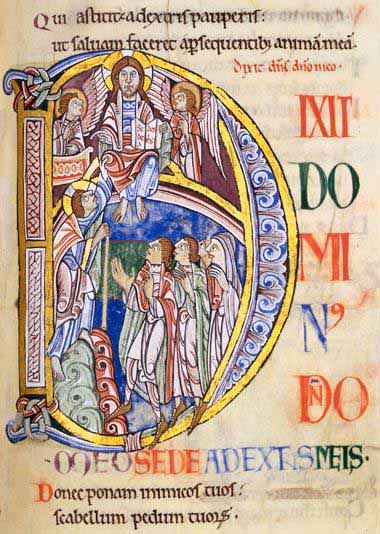 Qui astitit a dextris pauperis:
ut saluam faceret a ꝑsequentibꝫ animā meā.
Dixit dn̄s dn̄o meo.
DIXIT
DO
MI
Nꝰ
DN̄O
MEO SEDE A DEXTRIS MEIS.
Donec ponam inimicos tuos:
scabellum pedum tuoꝝ.